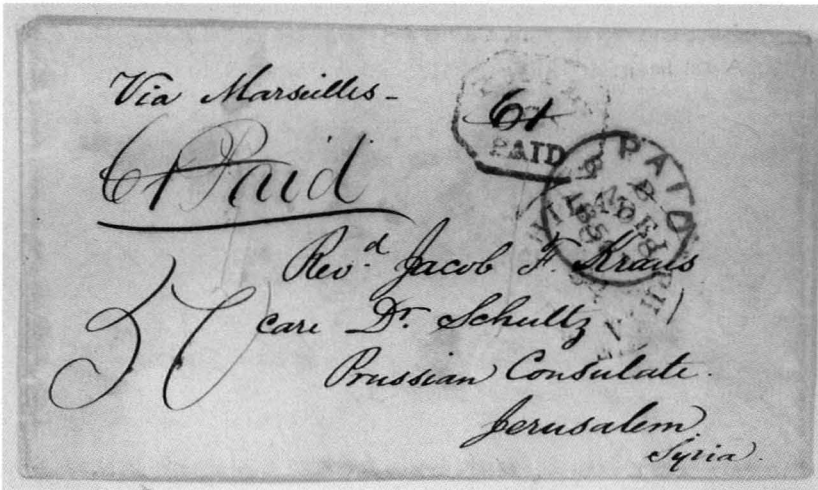 Via Marseilles -
61
PAID
61 Paid
PAID
Rev.d Jacob F. Kraus
50
care Dr. Schultz
Prussian Consulate.
Jerusalem.
Syria.